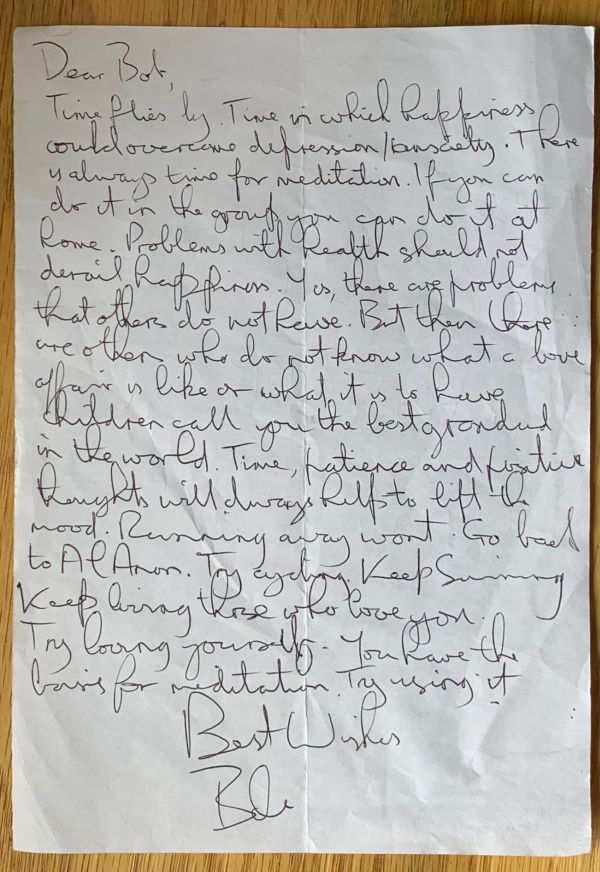 Dear Bob,
Time flies by. Time in which happiness
could overcome depression/anxiety. There
is always time for meditation. If you can
do it in the group you can do it at
home. Problems with health should not
derail happiness. Yes, there are problems
that others do not have. But then there
are others who do not know what a love
affair is like or what it is to have
children call you the best grandad
in the world. Time, patience and positive
thoughts will always help to lift the
mood. Running away wont. Go back
to Al Anon. Try cycling. Keep Swimming
Keep loving those who love you.
Try loving yourself. You have the
basis for meditation. Try using it
Best Wishes
Bob